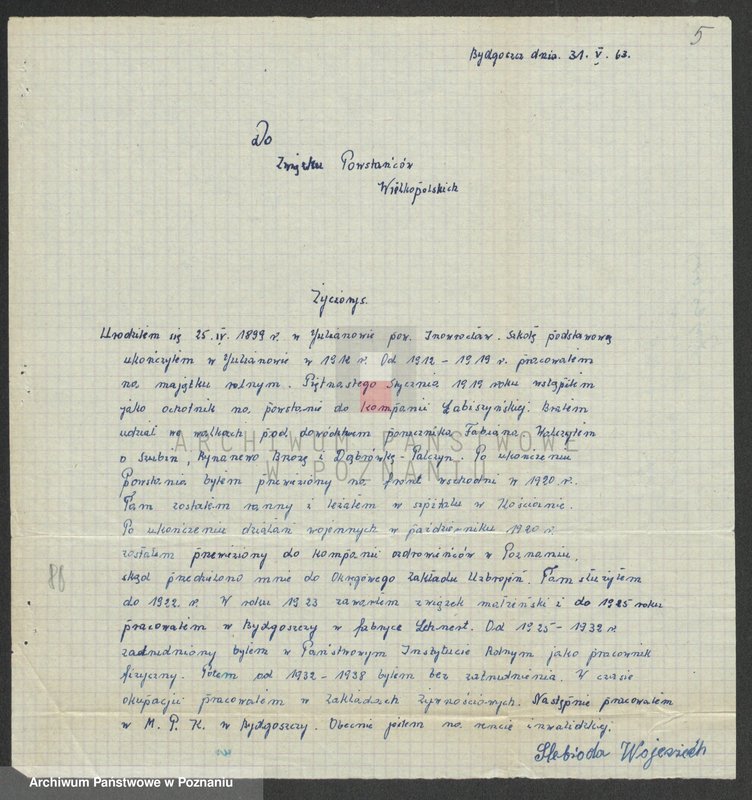 5
Bydgoszcz dnia. 31. V. 63.
Do
Związku Powstańców
Wielkopolskich
Życiorys.
Urodziłem się 25. IV. 1899 r. w Julianowie pow. Inowrocław. Szkołę podstawową
ukończyłem w Julianowie w 1912 r. Od 1912 - 1919 r. pracowałem
na majątku rolnym. Piętnastego Stycznia 1919 roku wstąpiłem
jako ochotnik na powstanie do kompanii Łabiszyńskiej. Brałem
udział we walkach pod dowództwem porucznika Fabiana. Walczyłem
o Szubin, Rynarzewo Brzozę i Dąbrówkę - Palczyn. Po ukończeniu
Powstania byłem przewieziony na front wschodni w 1920 r.
Tam zostałem ranny i leżałem w szpitalu w Kościanie.
Po ukończeniu działań wojennych w październiku 1920 r.
zostałem przewieziony do kompanii ozdrowieńców w Poznaniu,
skąd przedielono mnie do Okręgowego Zakładu Uzbrojeń. Tam służyłem
do 1922. r. W roku 1923 zawarłem związek małżeński i do 1925 roku
pracowałem w Bydgoszczy w fabryce Lehnert. Od 1925 - 1932 r.
zadrudniony byłem w Państwowym Instytucie Rolnym jako pracownik
fizyczny. Potem od 1932 - 1938 byłem bez zatrudnienia. W czasie
okupacji pracowałem w zakładach żywnościowych. Następnie pracowałem
w M. P. K. w Bydgoszczy. Obecnie jestem na rencie inwalidzkiej.
Słebioda Wojciech
88
ARCHIWUM PAŃSTWOWE
W POZNANIU
Archiwum Państwowe w Poznaniu